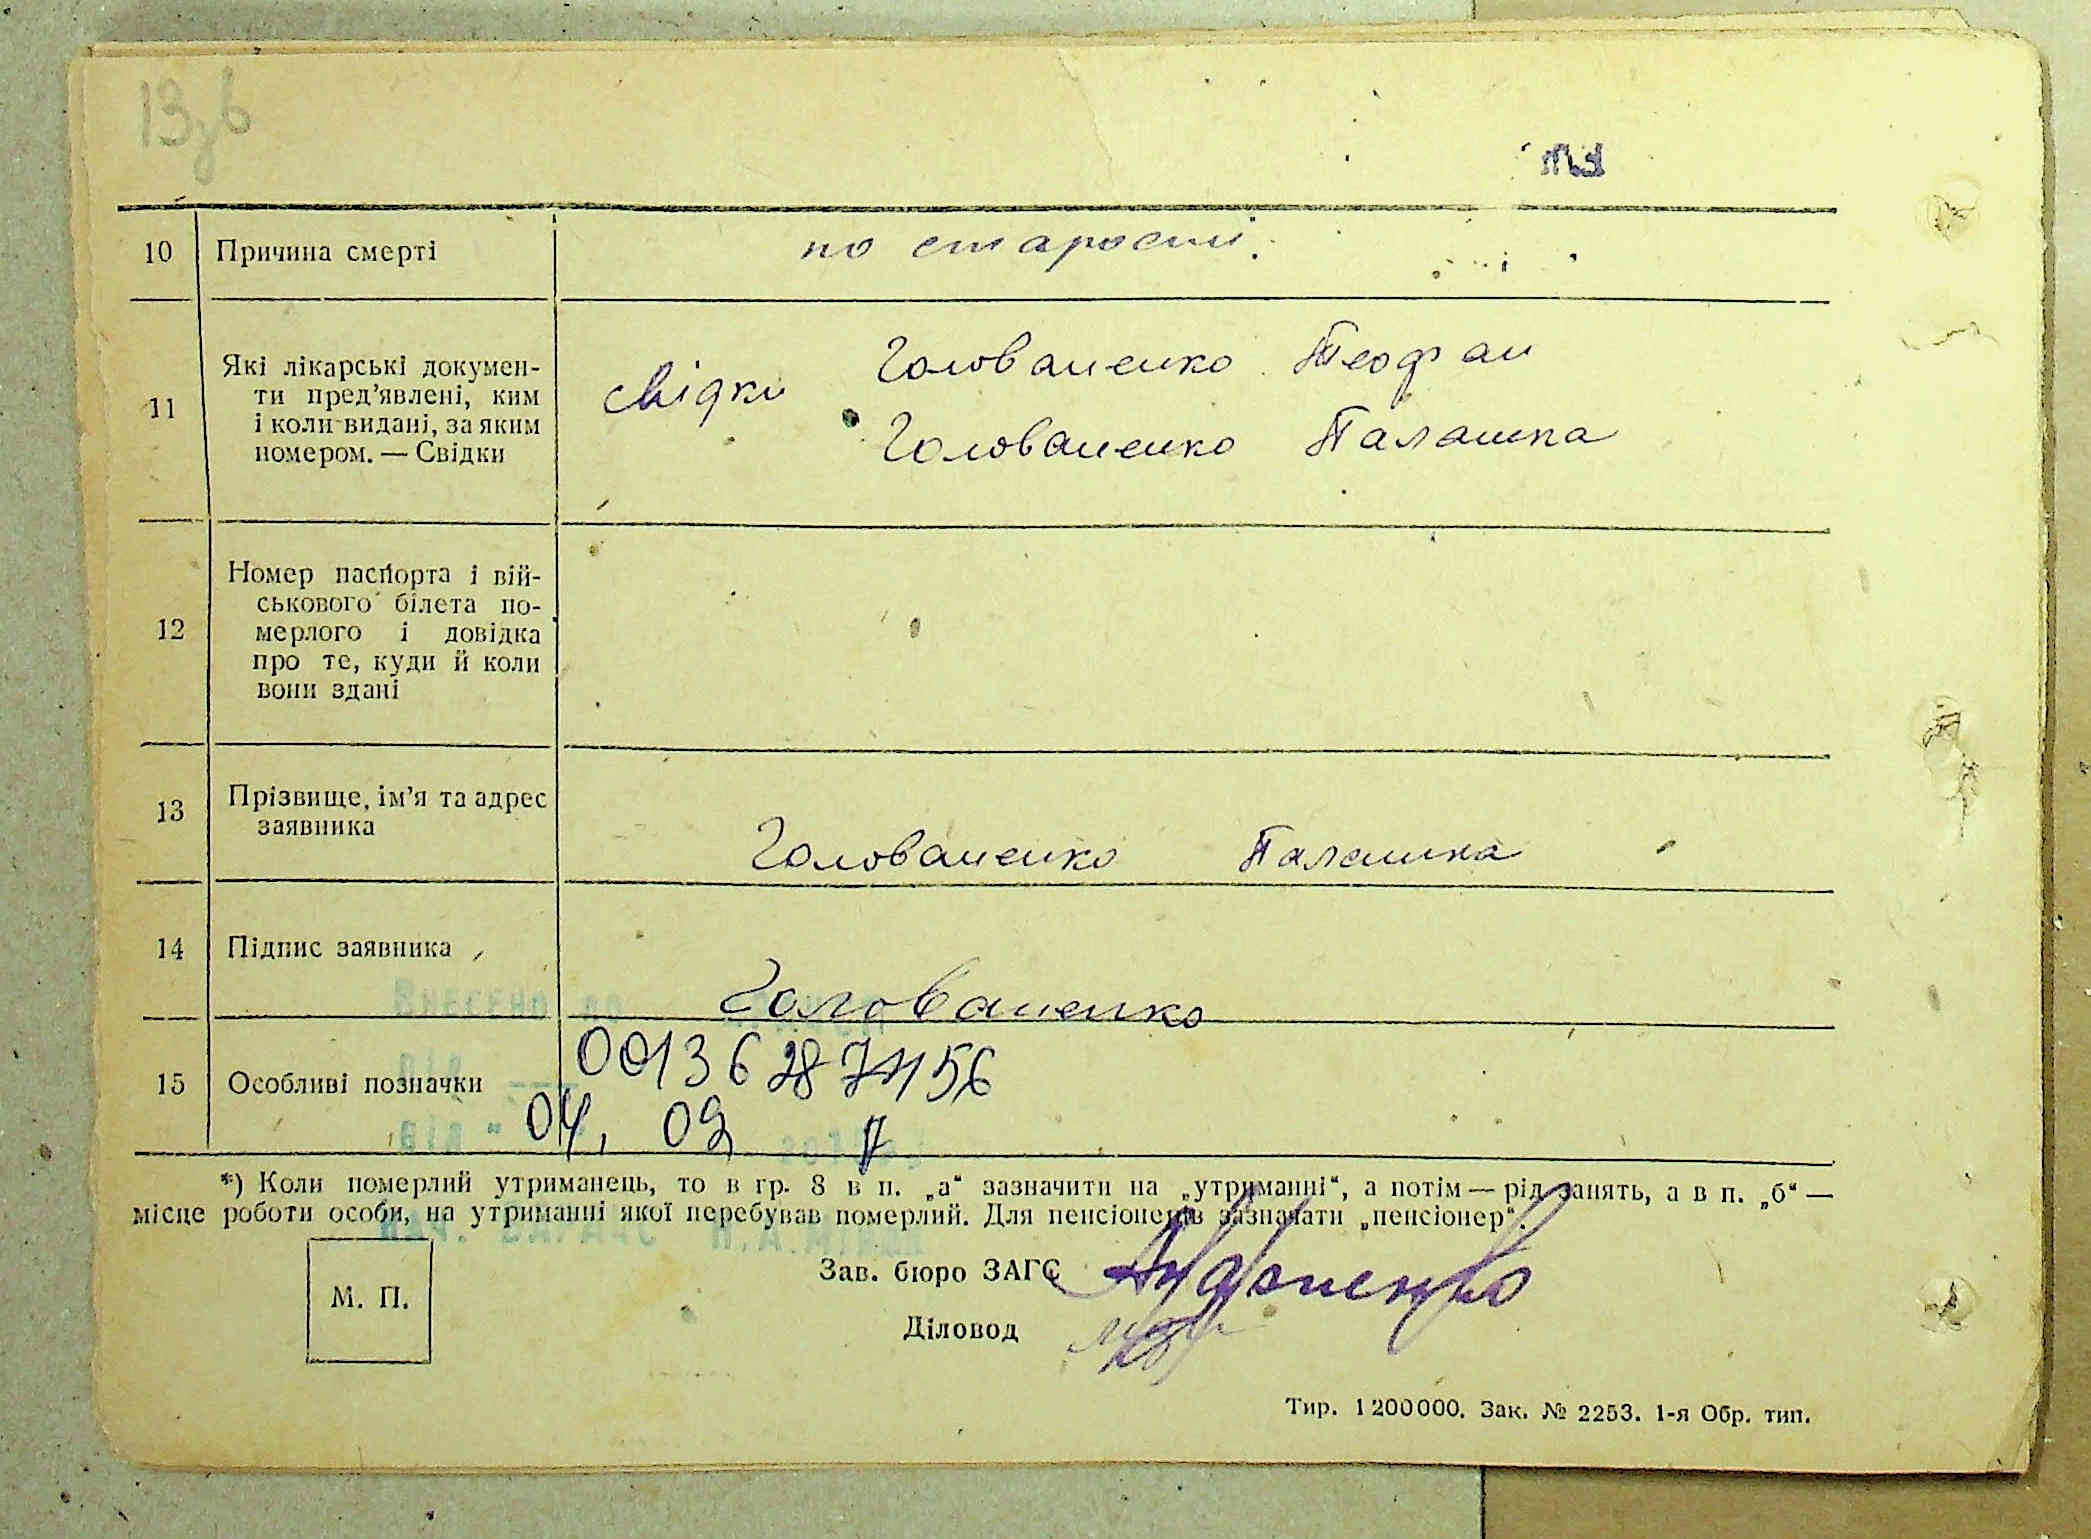 13зв
10 Причина смерті по старости.
11 Які лікарські докумен-
ти пред'явлені, ким
і коли видані, за яким
номером. — Свідки
свідки Голованенко Теофан
Голованенко Палашка
12 Номер паспорта і вій-
ськового білета по-
мерлого і довідка
про те, куди й коли
вони здані
13 Прізвище, ім'я та адрес
заявника
Голованенко Палашка
14 Підпис заявника
Голованенко
15 Особливі позначки
04. 09
*) Коли померлий утриманець, то в гр. 8 в п. „а“ зазначити на „утриманні“, а потім — рід занять, а в п. „б“ —
місце роботи особи, на утриманні якої перебував померлий. Для пенсіонерів зазначати „пенсіонер“.
М. П.
Зав. бюро ЗАГС
Діловод
Тир. 1200000. Зак. № 2253. 1-я Обр. тип.